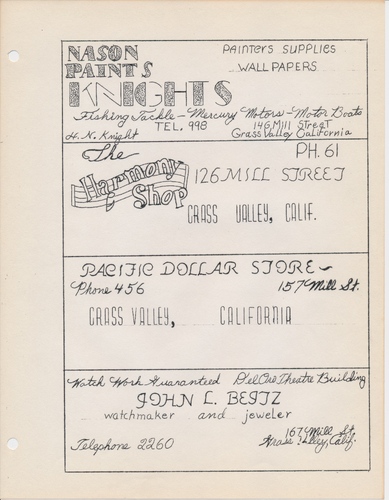 NASON PAINTS
PAINTERS SUPPLIES
WALLPAPERS
KNIGHTS
Fishing Tackle - Mercury Motors - Motor Boats
H. N. Knight
TEL. 998
146 Mill Street
Grass Valley California
The Harmony Shop
PH. 61
126 MILL STREET
GRASS VALLEY, CALIF.
PACIFIC DOLLAR STORE
Phone 456
157 Mill St.
GRASS VALLEY, CALIFORNIA
Watch Work Guaranteed
Del Oro Theatre Building
JOHN L. BETZ
watchmaker and jeweler
Telephone 2260
167 Mill St.
Grass Valley, Calif.